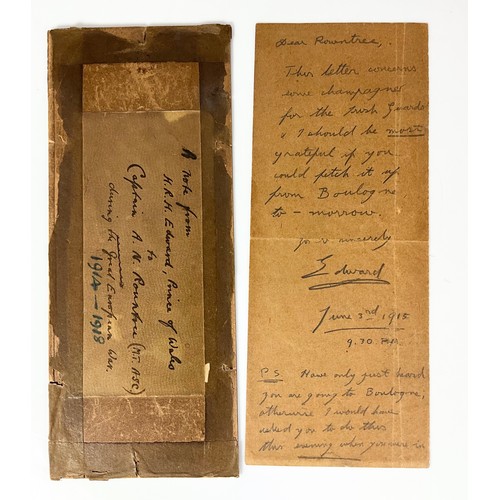 A note from
H.R.H. Edward, Prince of Wales
to
Captain A. N. Rowntree (M.T. ASC)
during the Great European War.
1914 – 1918
Dear Rowntree,
This letter concerns
some champagne
for the Irish Guards
& I should be most
grateful if you
could fetch it up
from Boulogne
to-morrow.
sincerely
Edward
June 3rd 1915
9.30 P.M.
P.S. Have only just heard
you are going to Boulogne,
otherwise I would have
asked you to do this
this evening when you were in